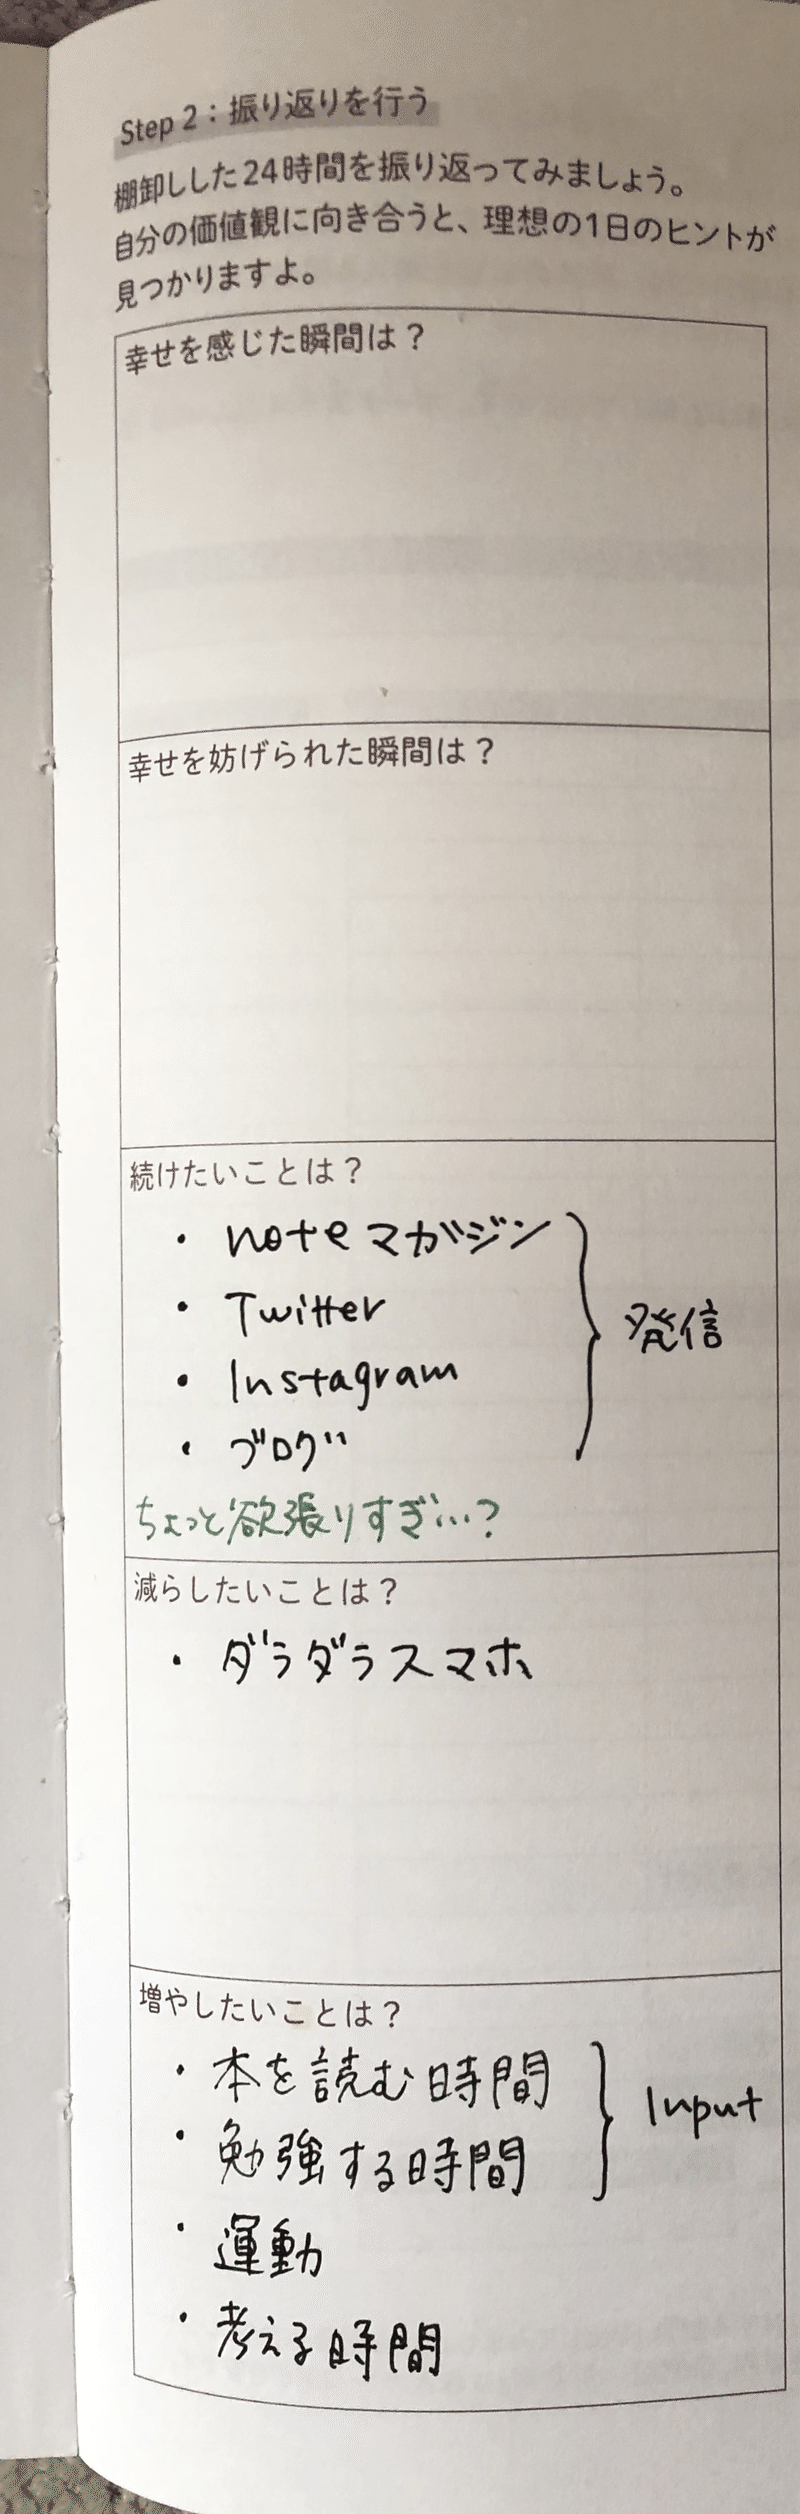 Step 2：振り返りを行う
棚卸しした24時間を振り返ってみましょう。
自分の価値観に向き合うと、理想の1日のヒントが
見つかりますよ。
幸せを感じた瞬間は？
幸せを妨げられた瞬間は？
続けたいことは？
・noteマガジン
・Twitter
・Instagram
・ブログ
発信
ちょっと欲張りすぎ…？
減らしたいことは？
・ダラダラスマホ
増やしたいことは？
・本を読む時間
・勉強する時間
Input
・運動
・考える時間